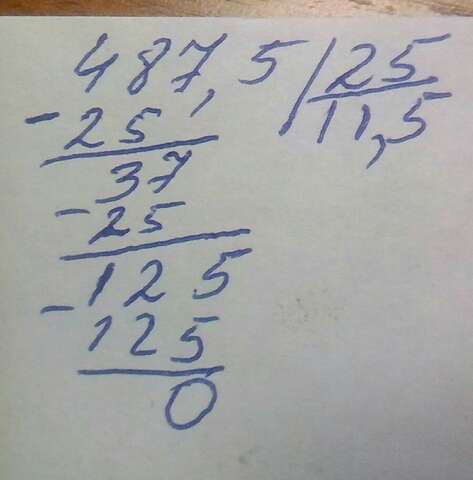 487,5 | 25
- 25 11,5
37
- 25
- 125
125
0